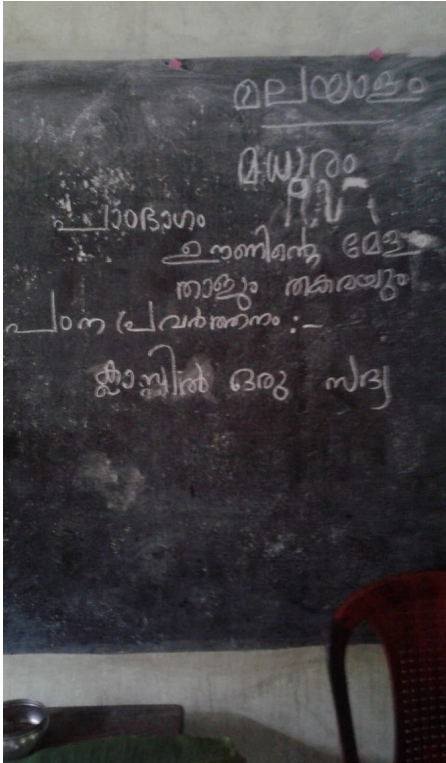 മലയാളം
മധുരം
പാഠഭാഗം
ഊണിന്റെ മേളം
താളും തകരയും
പഠന പ്രവർത്തനം :-
ക്ലാസ്സിൽ ഒരു സദ്യ